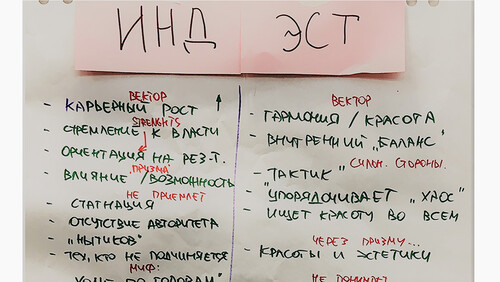 ИНД
ВЕКТОР
- КАРЬЕРНЫЙ РОСТ ↑
STRENGHTS
- СТРЕМЛЕНИЕ К ВЛАСТИ
- ОРИЕНТАЦИЯ НА РЕЗ-Т.
"ПРИЗМА"
- ВЛИЯНИЕ / ВОЗМОЖНОСТЬ
НЕ ПРИЕМЛЕТ
- СТАГНАЦИЯ
- ОТСУТСТВИЕ АВТОРИТЕТА
- „НЫТИКОВ"
- ТЕХ, КТО НЕ ПОДЧИНЯЕТСЯ
МИФ:
ПО ГОЛОВАМ"
ЭСТ
ВЕКТОР
- ГАРМОНИЯ / КРАСОТА
- ВНУТРЕННИЙ „БАЛАНС"
СИЛЬН. СТОРОНЫ.
- ТАКТИК
- "УПОРЯДОЧИВАЕТ „ХАОС"
- ИЩЕТ КРАСОТУ ВО ВСЕМ
ЧЕРЕЗ ПРИЗМУ...
- КРАСОТЫ И ЭСТЕТИКИ
НЕ ПОНИМАЕТ